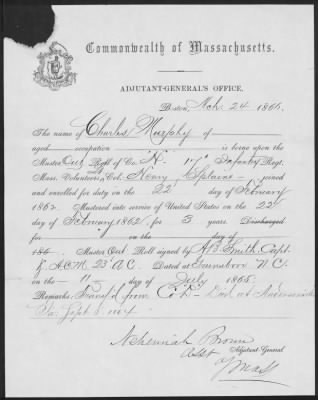 Commonwealth of Massachusetts.
ADJUTANT-GENERAL'S OFFICE,
Boston, Mch. 24 1866.
The name of Charles Murphy of
aged occupation is borne upon the
Muster Out Roll of Co. "K" 17" Infantry Regt.
Mass. Volunteers, Col. Henry Splaine joined
and enrolled for duty on the 22 day of February
1862. Mustered into service of United States on the 22
day of February 1862 for 3 years. Discharged
on the day of
186 . Muster Out Roll signed by Smith, Capt
& A.C.M. 23" A.C. Dated at Greensboro N.C.
on the 11 day of July 1865.
Remarks: Transf'd from Co. Died at Andersonville
Ga. Sept 5. 1864.
Nehemiah Brown
Asst Adjutant-General
Mass